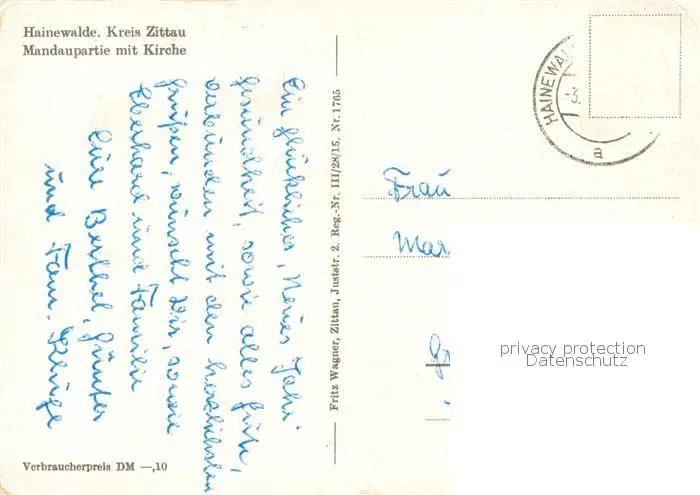 Hainewalde. Kreis Zittau
Mandaupartie mit Kirche
Ein glückliches, Neues Jahr
Gesundheit, sowie alles gute,
verbunden mit den herzlichsten
grüßen, wünscht Dir, sowie
Eberhard und Familie
Eure Berthel, Günter
und Fam. Kluge
Verbraucherpreis DM —,10
Fritz Wagner, Zittau, Juststr. 2. Reg.-Nr. III/28/15. Nr. 1765
HAINEWAL
-3.
a
Frau
Mar
privacy protection
Datenschutz